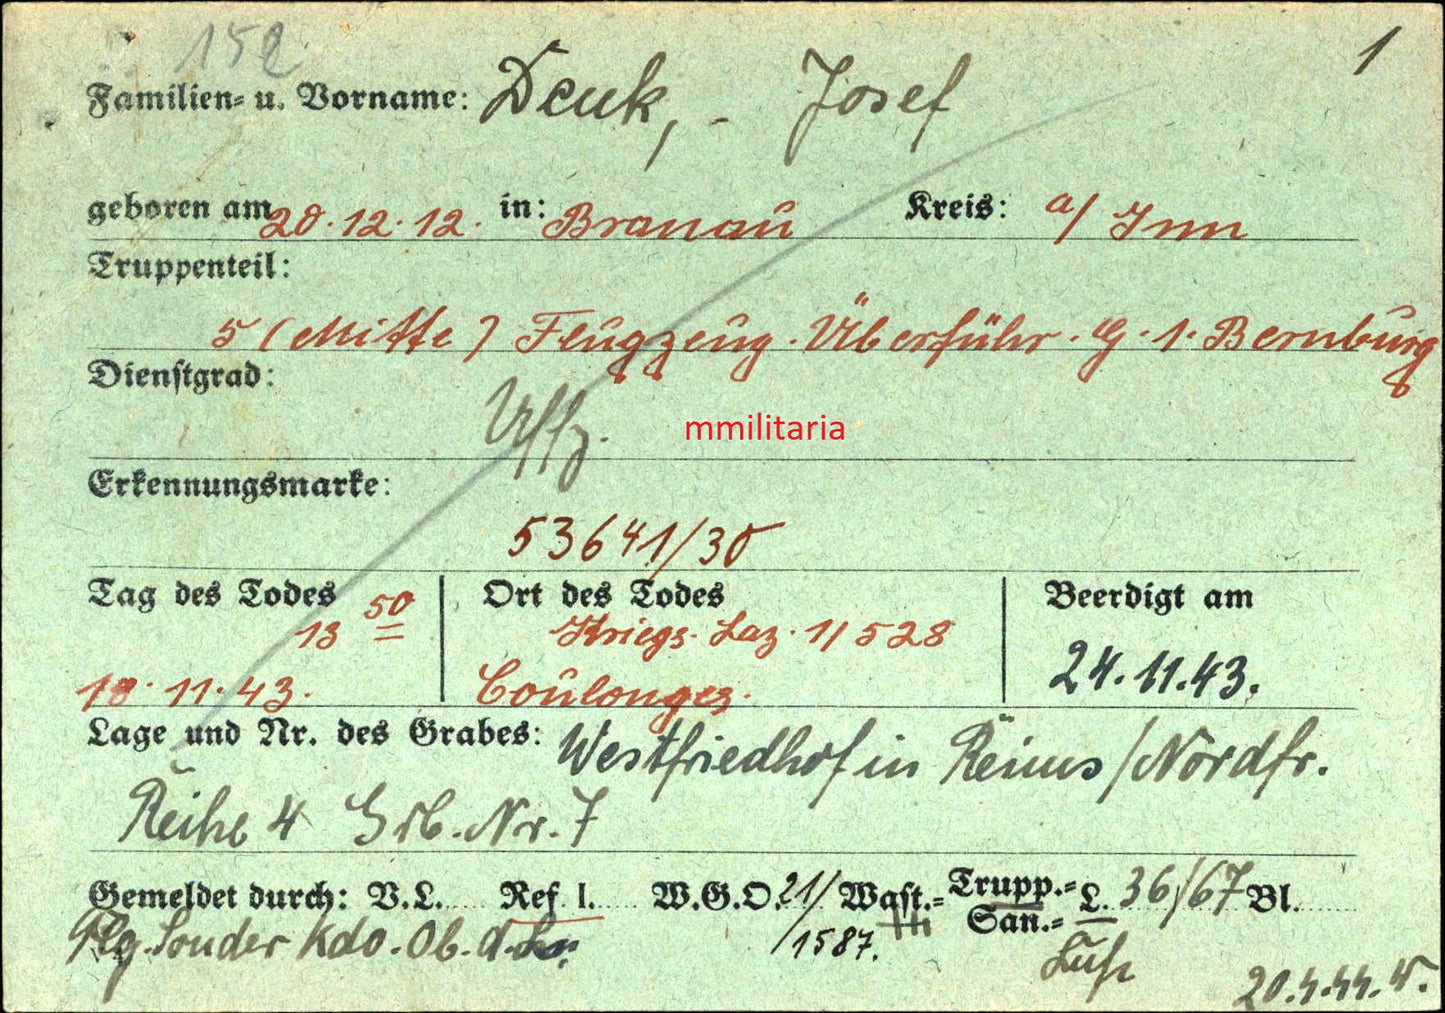 152
1
Familien- u. Vorname: Denk, - Josef
geboren am 20.12.12. in: Branau Kreis: a/ Inn
Truppenteil:
5 (Mitte) Flugzeug. Überführ. G. 1. Bernburg
Dienstgrad:
Uffz.
mmilitaria
Erkennungsmarke:
53641/30
Tag des Todes Ort des Todes Beerdigt am
13 50 Kriegs. Laz. 1/528
18.11.43. Coulonges. 24.11.43.
Lage und Nr. des Grabes: Westfriedhof in Reims/Nordfr.
Reihe 4 Grb. Nr. 7
Gemeldet durch: V.L. Ref. I. W.G.O. 21/ Wast.= Trupp.= L. 36/67 Bl.
San.=
Flg. Sonder Kdo. Ob. d. 1587.
20.4.44.